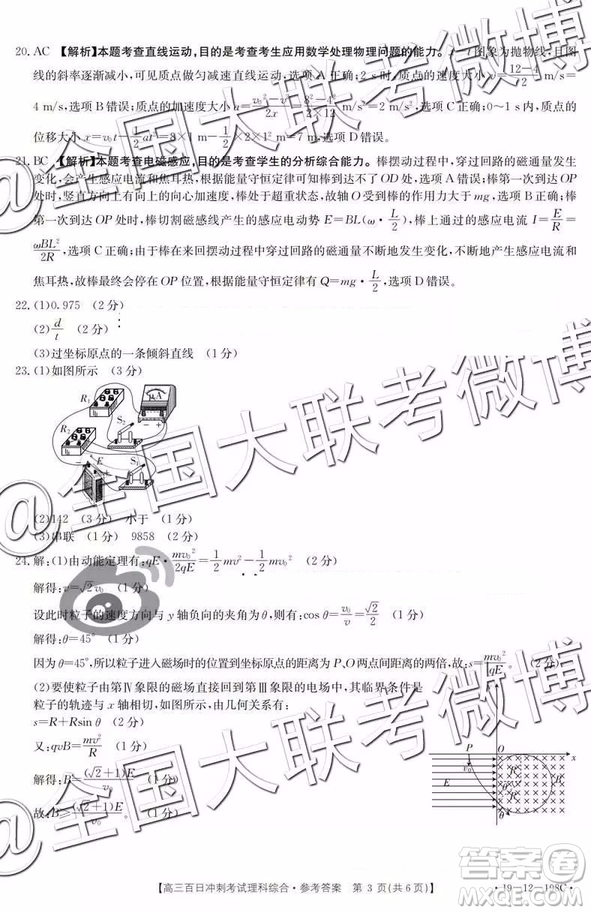 20. AC 【解析】本题考查直线运动,目的是考查考生应用数学处理物理问题的能力。x-t图象为抛物线,且图
线的斜率逐渐减小,可见质点做匀减速直线运动,选项A正确;2 s时,质点的速度大小v=(12-4)/
4 m/s,选项B错误;质点的加速度大小a=
位移大小x=v₀t-½at²=8×1 m-½×2×1² m=7 m,选项D错误。
21. BC 【解析】本题考查电磁感应,目的是考查学生的分析综合能力。棒摆动过程中,穿过回路的磁通量发生
变化,会产生感应电流和焦耳热,根据能量守恒定律可知棒到达不了OD处,选项A错误;棒第一次到达OP
处时有竖直方向上的向心加速度,故轴O受到棒的作用力大于mg,选项B正确;棒
第一次到达OP处时,棒切割磁感线产生的感应电动势E=BL(ω·L/2),棒上通过的感应电流I=E/R=
ωBL²/2R,选项C正确;由于棒在来回摆动过程中穿过回路的磁通量不断地发生变化,不断地产生感应电流和
焦耳热,故棒最终会静止在OP位置,根据能量守恒定律有Q=mg·L/2,选项D错误。
22. (1)0.975 (2分)
(2)d/t (2分)
(3)过坐标原点的一条倾斜直线 (1分)
23. (1)如图所示 (3分)
R₁
μA
S₂
R₂
E
S₁
(2)142 (3分) 小于 (1分)
(3)串联 (1分) 9858 (2分)
24. 解:(1)由动能定理有:qE·mv₀²/2qE=½mv²-½mv₀² (2分)
解得:v=√2v₀ (1分)
设此时粒子的速度方向与y轴负向的夹角为θ,则有:cos θ=v₀/v=√2/2 (1分)
解得:θ=45° (1分)
因为θ=45°,所以粒子进入磁场时的位置到坐标原点的距离为P、O两点间距离的两倍,故:s=mv₀²/qE。 (1分)
(2)要使粒子由第Ⅳ象限的磁场回到第Ⅲ象限的电场中,其临界条件是
粒子的轨迹与x轴相切,如图所示,由几何关系有:
s=R+Rsin θ (2分)
又:qvB=mv²/R (1分)
解得:B=(√2+1)E/v₀ (1分)
故B≥(√2+1)E/v₀。 (1分)
P
O
x
v₀
E
R
R
θ
θ
v
【高三百日冲刺考试理科综合·参考答案 第 3 页(共 6 页)】
·19-12-198C·
@全国大联考微博
@全国大联考微博
答案圈
MXEQE.COM